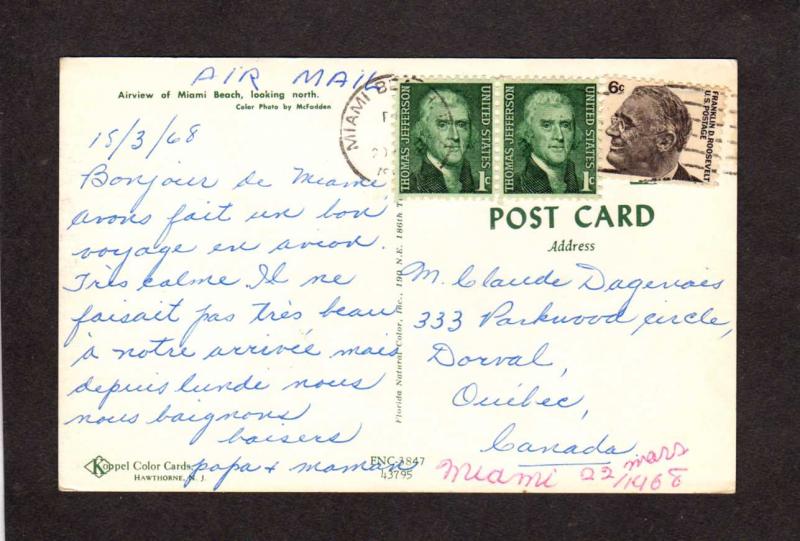 AIR MAIL
Airview of Miami Beach, looking north.
Color Photo by McFadden
15/3/68
Bonjour de Miami
avons fait un bon
voyage en avion.
Très calme. Il ne
faisait pas très beau
à notre arrivée mais
depuis lundi nous
nous baignons
baisers
papa + maman
Koppel Color Cards
HAWTHORNE, N. J.
FNC-3847
43795
Florida Natural Color, Inc., 190 N.E. 186th
MIAMI
THOMAS JEFFERSON
UNITED STATES
1c
THOMAS JEFFERSON
UNITED STATES
1c
6c
FRANKLIN D. ROOSEVELT
U.S. POSTAGE
POST CARD
Address
M. Claude Dagenais
333 Parkwood circle,
Dorval,
Québec,
Canada
Miami 22 mars
/1968